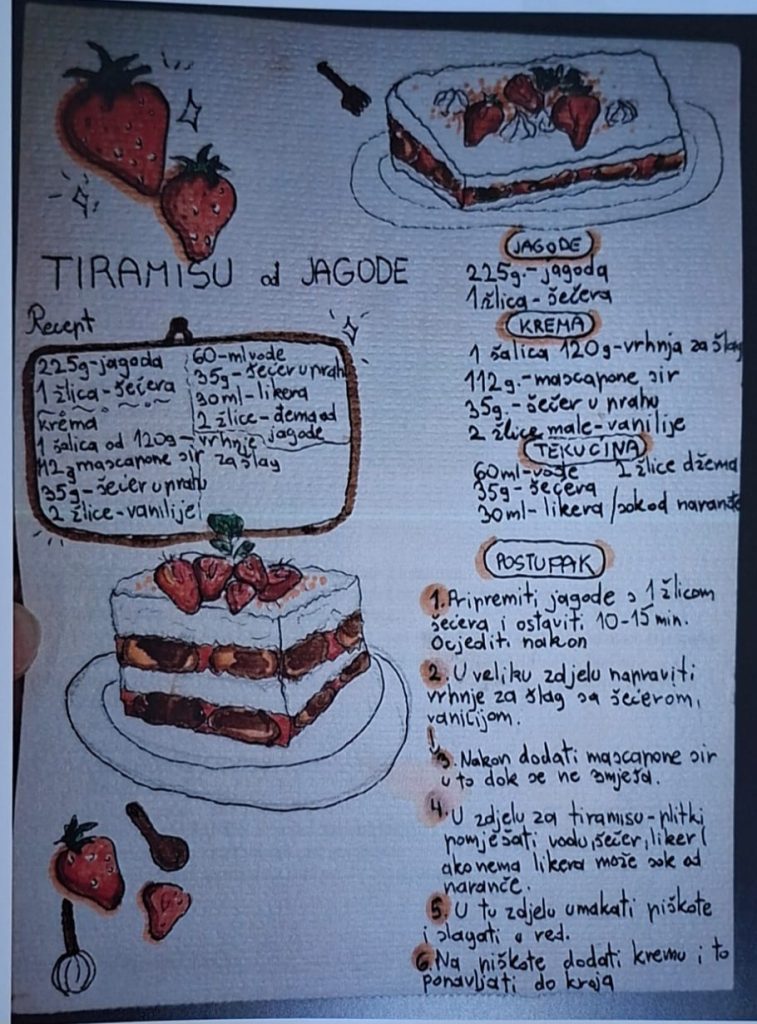 TIRAMISU od JAGODE
Recept
225g-jagoda
1 žlica-šećera
krema
1 šalica od 120g- vrhnje za šlag
112g mascapone sir
35g-šećer u prahu
2 žlice-vanilije
60-ml vode
35g-šećer u prahu
30ml-likera
2 žlice-đema od
jagode
JAGODE
225g.-jagoda
1 žlica-šećera
KREMA
1 šalica 120g-vrhnja za šlag
112g.-mascapone sir
35g.-šećer u prahu
2 žlice male-vanilije
TEKUĆINA
60ml-vode 2 žlice džema
35g-šećera
30ml-likera/sok od naranđe
POSTUPAK
1. Pripremiti jagode s 1 žlicom
šećera i ostaviti 10-15 min.
Ocjediti nakon
2. U veliku zdjelu napraviti
vrhnje za šlag sa šećerom,
vanilijom.
3. Nakon dodati mascapone sir
u to dok se ne smješa.
4. U zdjelu za tiramisu-plitki
pomješati vodu, šećer, liker (
ako nema likera može sok od
naranče.
5. U tu zdjelu umakati piškote
i slagati u red.
6. Na piškote dodati kremu i to
ponavljati do kraja